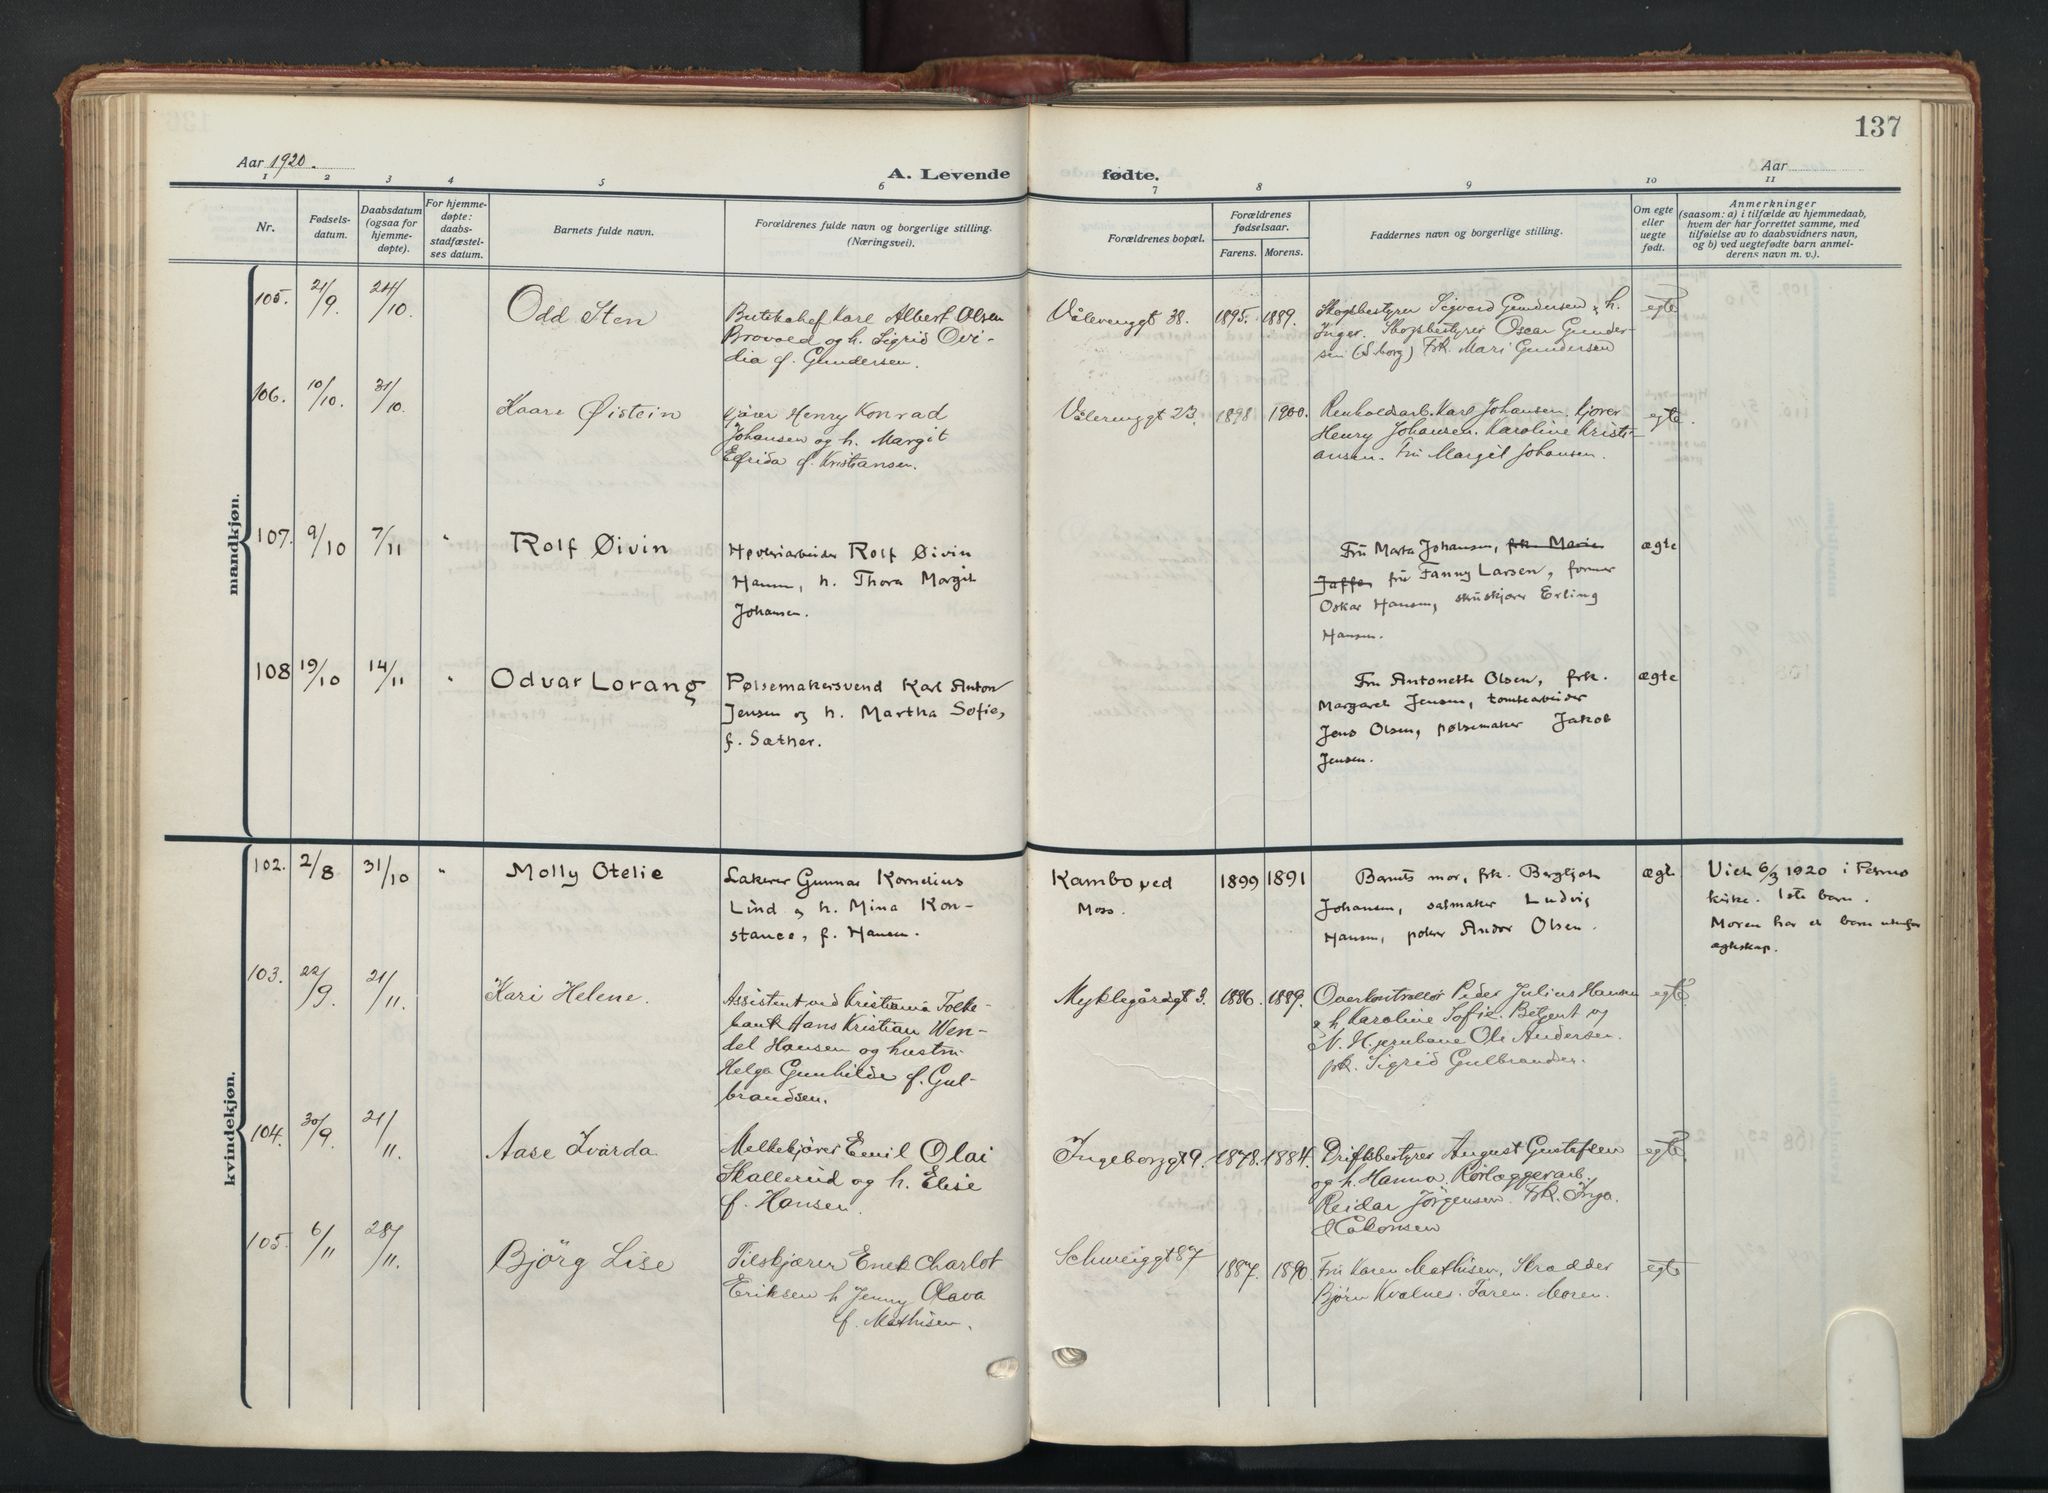 137
Aar 1920.
A. Levende fødte.
Aar
1 2 3 4 5 6 7 8 9 10 11
Nr.
Fødsels-
datum.
Daabsdatum
(ogsaa for
hjemme-
døpte).
For hjemme-
døpte:
daabs-
stadfæstel-
ses datum.
Barnets fulde navn.
Forældrenes fulde navn og borgerlige stilling.
(Næringsvei).
Forældrenes bopæl.
Forældrenes
fødselsaar.
Farens. Morens.
Faddernes navn og borgerlige stilling.
Om egte
eller
uegte
født.
Anmerkninger
(saasom: a) i tilfælde av hjemmedaab,
hvem der har forrettet samme, med
tilføielse av to daabsvidners navn,
og b) ved uegtefødte barn anmel-
derens navn m. v.).
mandkjøn.
105. 21/9 24/10 Odd Sten
Butikchef Karl Albert Olsen
Brovold og h. Sigrid Ovi-
dia f. Gundersen.
Vålerenggt 38. 1895. 1889.
Skogsbestyrer Sigvard Gundersen, h.
Inger. Skogsbestyrer Oscar Gunder-
sen (S.borg) Frk. Mari Gundersen
egte
106. 10/10. 31/10. Kaare Øistein
kjører Henry Konrad
Johansen og h. Margit
Elfrida f. Kristiansen.
Vålerenggt 23. 1898. 1900.
Renholdsarb. Karl Johansen. kjører
Henry Johansen. Karoline Kristi-
ansen. Fru Margit Johansen.
egte.
107. 9/10 7/11 " Rolf Øivin
Høvleriarbeider Rolf Øivin
Hansen, h. Thora Margit
Johansen.
Fru Marta Johansen, frk. Marie
Jaffe, fru Fanny Larsen, former
Oskar Hansen, skruskjærer Erling
Hansen.
ægte
108 19/10 14/11 " Odvar Lorang
Pølsemakersvend Karl Anton
Jensen og h. Martha Sofie,
f. Sæther.
Fru Antonette Olsen, frk.
Margaret Jensen, tomtearbeider
Jens Olsen, pølsemaker Jakob
Jensen.
ægte
kvindekjøn.
102. 2/8 31/10 " Molly Otelie
Lakerer Gunnar Kornelius
Lind og h. Mina Kon-
stance, f. Hansen.
Kambo ved
Moss.
1899 1891
Barnets mor, frk. Bergljot
Johansen, salmaker Ludvig
Hansen, polerer Andor Olsen.
ægte
Viet 6/3 1920 i Petrus
kirke. 1ste barn.
Moren har et barn utenfor
ægteskap.
103. 22/9. 21/11. Kari Helene.
Assistent ved Kristiania Folke-
bank Hans Kristian Wen-
del Hansen og hustru
Helga Gunhilde f. Gul-
brandsen.
Myklegårdgt 3. 1886. 1889.
Overkontrollør Peder Julius Hansen
og h. Karoline Sofie. Betjent og
N. Hjernbane Ole Andersen.
frk. Sigrid Gulbrandsen.
egte.
104. 30/9. 21/11. Aase Ivarda
Melkekjører Emil Olai
Skallerud og h. Elise
f. Hansen.
Ingeborggt 9. 1878. 1884.
Driftsbestyrer August Gustafsen
og h. Hanna. Rørlæggerarb.
Reidar Jörgensen. Frk. Inga
Hakonsen
egte.
105. 6/11 28/11. Björg Lise
Filskjærer Enek Charlot
Eriksen h. Jenny Olava
f. Mathisen.
Schweiggt 87 1887. 1890.
Fru Karen Mathisen, Skrædder
Björn Kvalnes. Faren. Moren.
egte